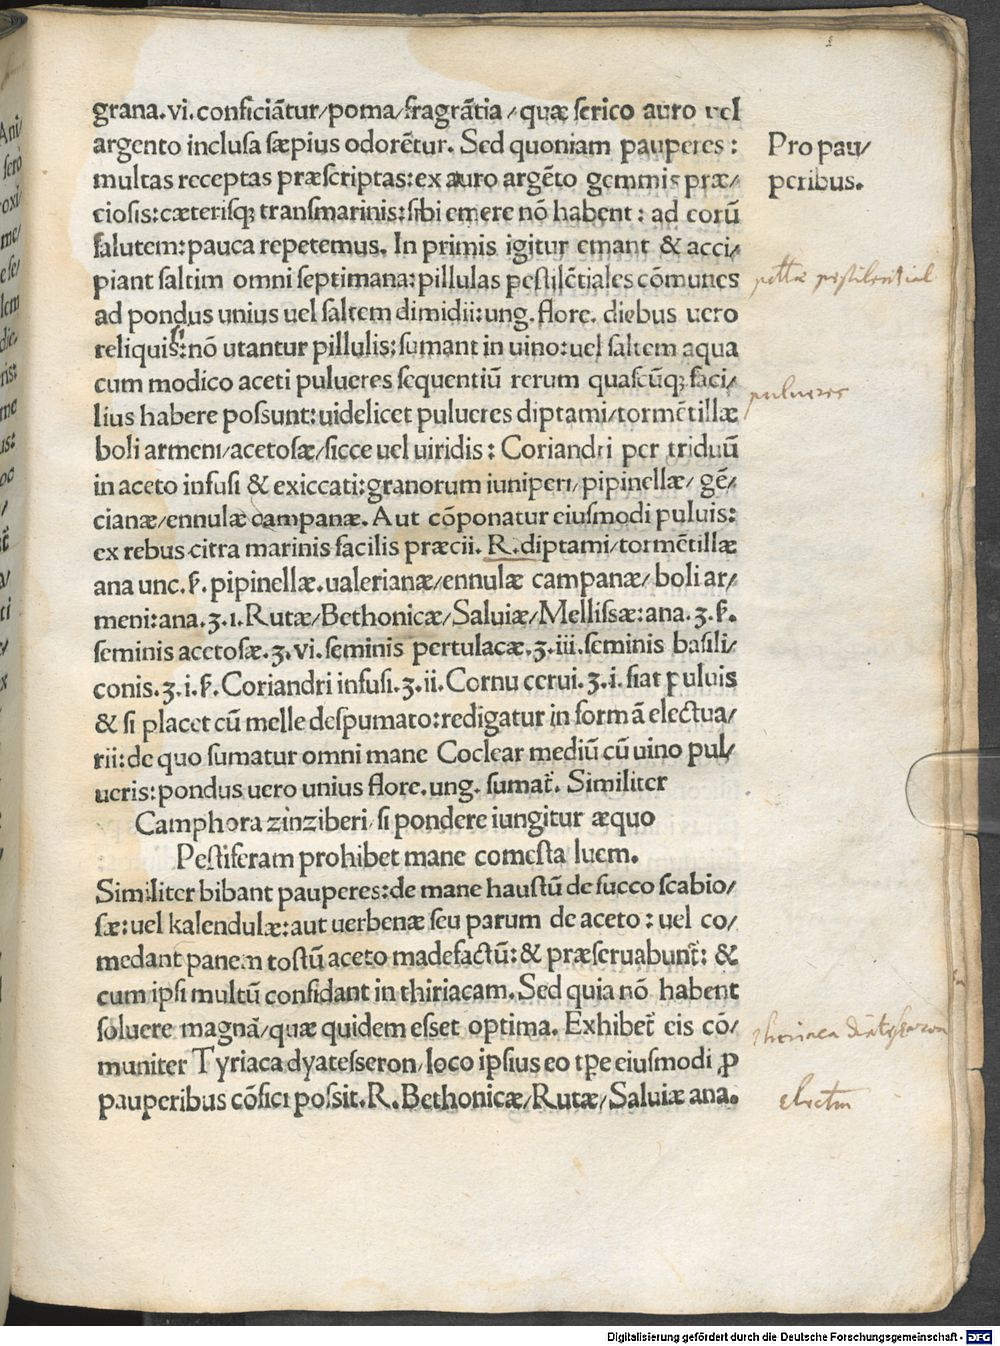 grana.vi.conficiãtur/poma/fragrãtia/quæ ſerico auro uel
argento incluſa ſæpius odorẽtur. Sed quoniam pauperes:
Pro pau/
multas receptas præſcriptas:ex auro argẽto gemmis præ/
peribus.
cioſis:cæteriſq; tranſmarinis:ſibi emere nõ habent: ad eorũ
ſalutem:pauca repetemus. In primis igitur emant & acci/
piant ſaltim omni ſeptimana:pillulas peſtilẽtiales cõmunes
pestilential
ad pondus unius uel ſaltem dimidii:ung. flore. diebus uero
reliquis:nõ utantur pillulis:ſumant in uino:uel ſaltem aqua
cum modico aceti pulueres ſequentiũ rerum quaſcũq; faci/
pulueres
lius habere poſſunt:uidelicet pulueres diptami/tormẽtillæ
boli armeni/acetoſæ/ſicce uel uiridis: Coriandri per triduũ
in aceto infuſi & exiccati:granorum iuniperi/pipinellæ/gẽ/
cianæ/ennulæ campanæ. Aut cõponatur eiuſmodi puluis:
ex rebus citra marinis facilis præcii. R.diptami/tormẽtillæ
ana unc.ſ.pipinellæ.ualerianæ/ennulæ campanæ/boli ar/
meni:ana.ʒ.i.Rutæ/Bethonicæ/Saluiæ/Melliſſæ:ana.ʒ.ſ.
ſeminis acetoſæ.ʒ.vi.ſeminis pertulacæ.ʒ.iii.ſeminis baſili/
conis.ʒ.i.ſ.Coriandri infuſi.ʒ.ii.Cornu cerui.ʒ.i.fiat puluis
& ſi placet cũ melle deſpumato:redigatur in formã electua/
rii:de quo ſumatur omni mane Coclear mediũ cũ uino pul/
ueris:pondus uero unius flore.ung. ſumat̃. Similiter
Camphora zinziberi/ſi pondere iungitur æquo
Peſtiferam prohibet mane comeſta luem.
Similiter bibant pauperes:de mane hauſtũ de ſucco ſcabio/
ſæ:uel kalendulæ:aut uerbenæ ſeu parum de aceto: uel co/
medant panem toſtũ aceto madefactũ:& præſeruabunt̃: &
cum ipſi multũ confidant in thiriacam. Sed quia nõ habent
ſoluere magnã/quæ quidem eſſet optima. Exhibet̃ eis cõ/
thiriaca diatesseron
muniter Tyriaca dyateſſeron/loco ipſius eo tꝑe eiuſmodi ꝓ
pauperibus cõfici poſſit.R.Bethonicæ/Rutæ/Saluiæ ana.
Digitalisierung gefördert durch die Deutsche Forschungsgemeinschaft - DFG